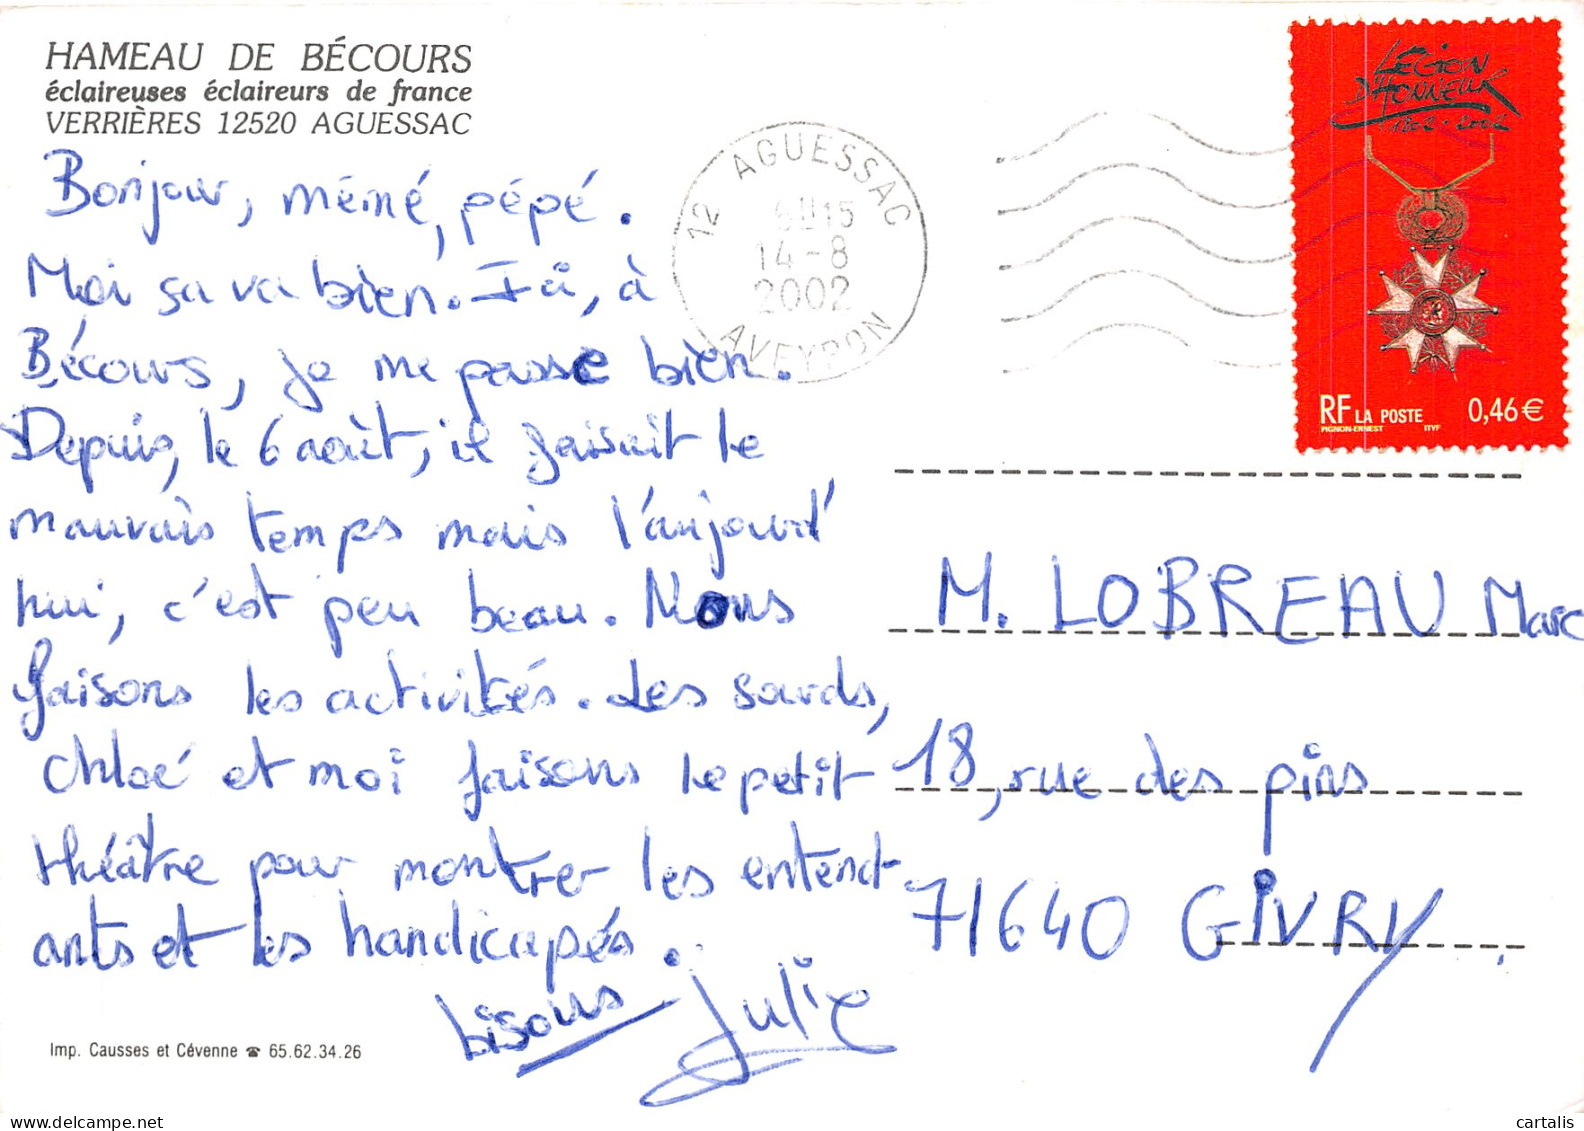 HAMEAU DE BÉCOURS
éclaireuses éclaireurs de france
VERRIÈRES 12520 AGUESSAC
Bonjour, mémé, pépé.
Moi sa va bien. Là, à
Bécours, je me passe bien.
Depuis, le 6 août, il faisait le
mauvais temps mais l'aujourd'
hui, c'est peu beau. Nous
faisons les activités. Les sourds,
Chloé et moi faisons le petit
théâtre pour montrer les entend-
ants et les handicapés.
bisous Julie
Imp. Causses et Cévenne ☎ 65.62.34.26
12 AGUESSAC
14-8
2002
AVEYRON
LEGION
D'HONNEUR
1802 - 2002
RF LA POSTE 0,46 €
PIGNON-ERNEST ITVF
M. LOBREAU Marc
18, rue des pins
71640 GIVRY
cartalis
www.delcampe.net